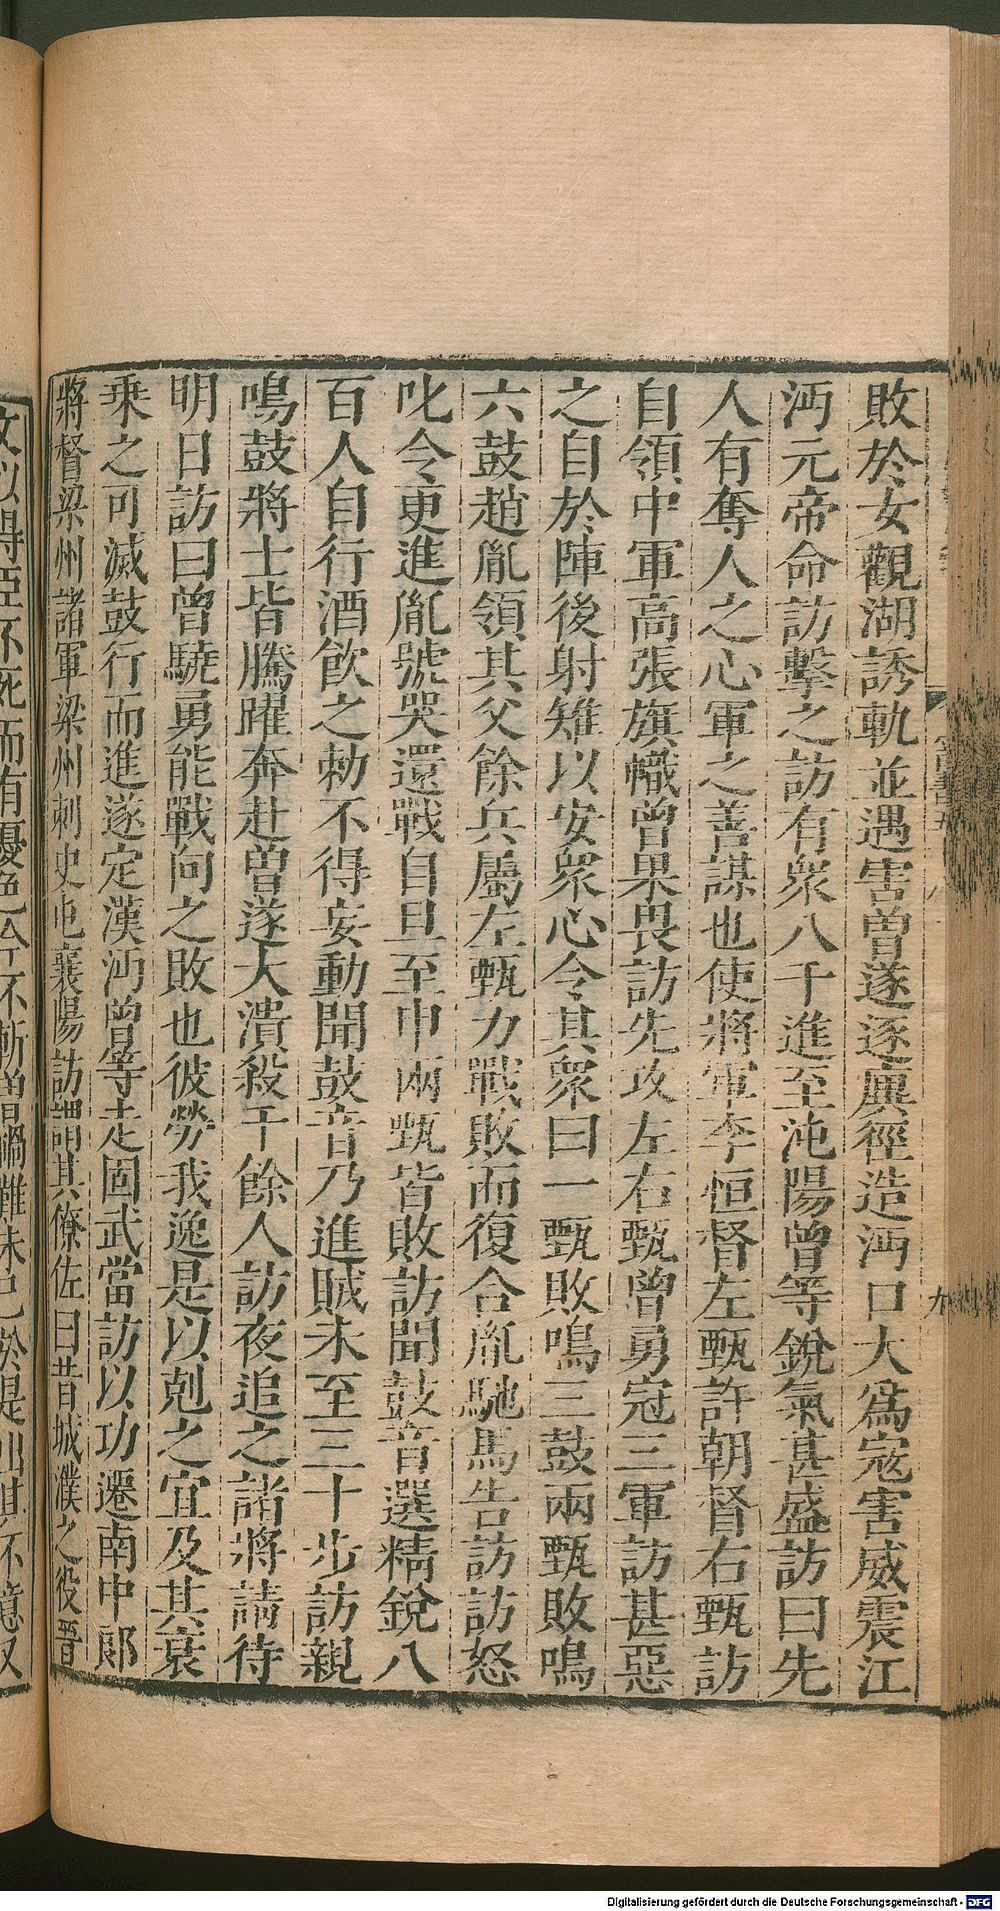 敗於女觀湖誘軌並遇害曾遂逐廙徑造沔口大爲寇害威震江
沔元帝命訪擊之訪有衆八千進至沌陽曾等銳氣甚盛訪曰先
人有奪人之心軍之善謀也使將軍李恒督左甄許朝督右甄訪
自領中軍高張旗幟曾果畏訪先攻左右甄曾勇冠三軍訪甚惡
之自於陣後射雉以安衆心令其衆曰一甄敗鳴三鼓兩甄敗鳴
六鼓趙胤領其父餘兵屬左甄力戰敗而復合胤馳馬告訪訪怒
叱令更進胤號哭還戰自旦至申兩甄皆敗訪聞鼓音選精銳八
百人自行酒飮之勑不得妄動聞鼓音乃進賊未至三十步訪親
鳴鼓將士皆騰躍奔赴曾遂大潰殺千餘人訪夜追之諸將請待
明日訪曰曾驍勇能戰向之敗也彼勞我逸是以剋之宜及其衰
乘之可滅鼓行而進遂定漢沔曾等走固武當訪以功遷南中郎
將督梁州諸軍梁州刺史屯襄陽訪謂其僚佐曰昔城濮之役晉
文以得臣不死而有憂色今不斬曾禍難未已於是出其不意又
九
Digitalisierung gefördert durch die Deutsche Forschungsgemeinschaft - DFG